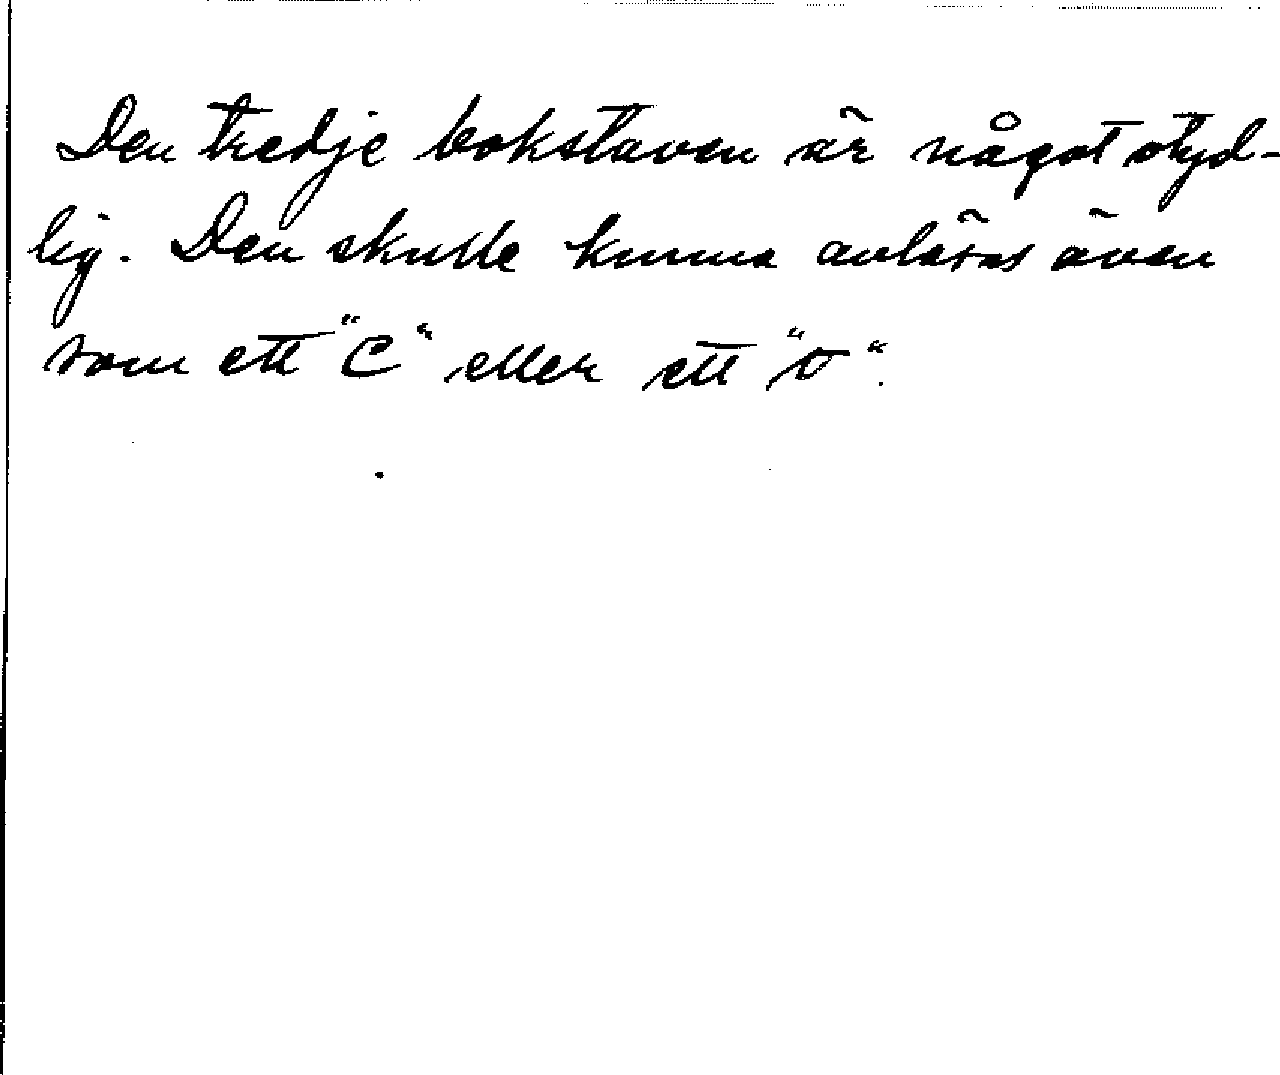 Den tredje bokstaven är något otyd-
lig. Den skulle kunna avläsas även
som ett "C" eller ett "O".